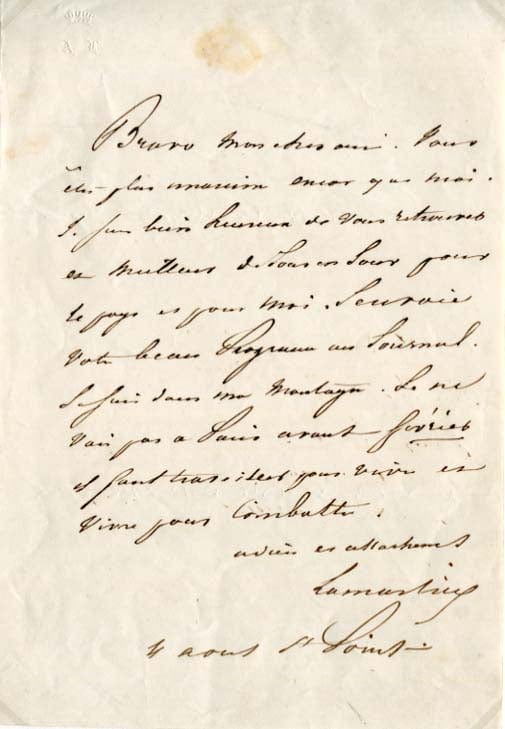 A L
Bravo mon cher ami. Vous
êtes plus encor que moi.
Je suis bien heureux de vous retrouver
et meilleur de tous ces pour
le pays et pour moi. J'envoie
votre beau Programe au Journal.
Je suis dans ma Montagne. Je ne
vais pas a Paris avant février
il faut travailler pour vivre et
vivre pour combattre.
adieu et attachement
Lamartine
4 aout St Point